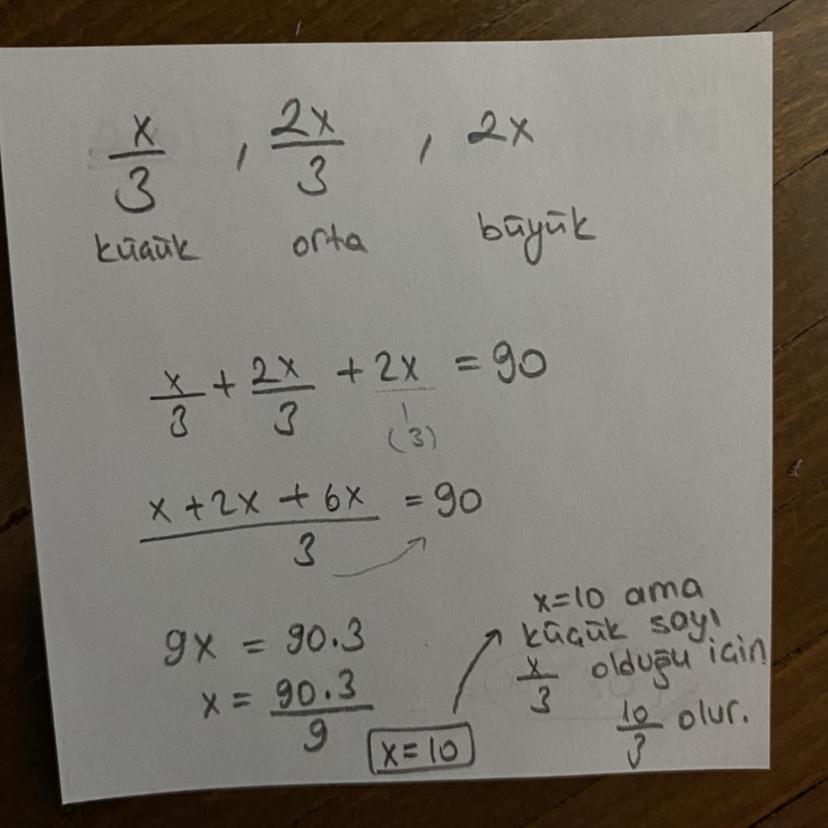 x/3 , 2x/3 , 2x
küçük orta büyük
x/3 + 2x/3 + 2x/1 = 90
(3)
x + 2x + 6x / 3 = 90
9x = 90.3
x = 90.3 / 9
x = 10
x = 10 ama
küçük sayı
x/3 olduğu için
10/3 olur.